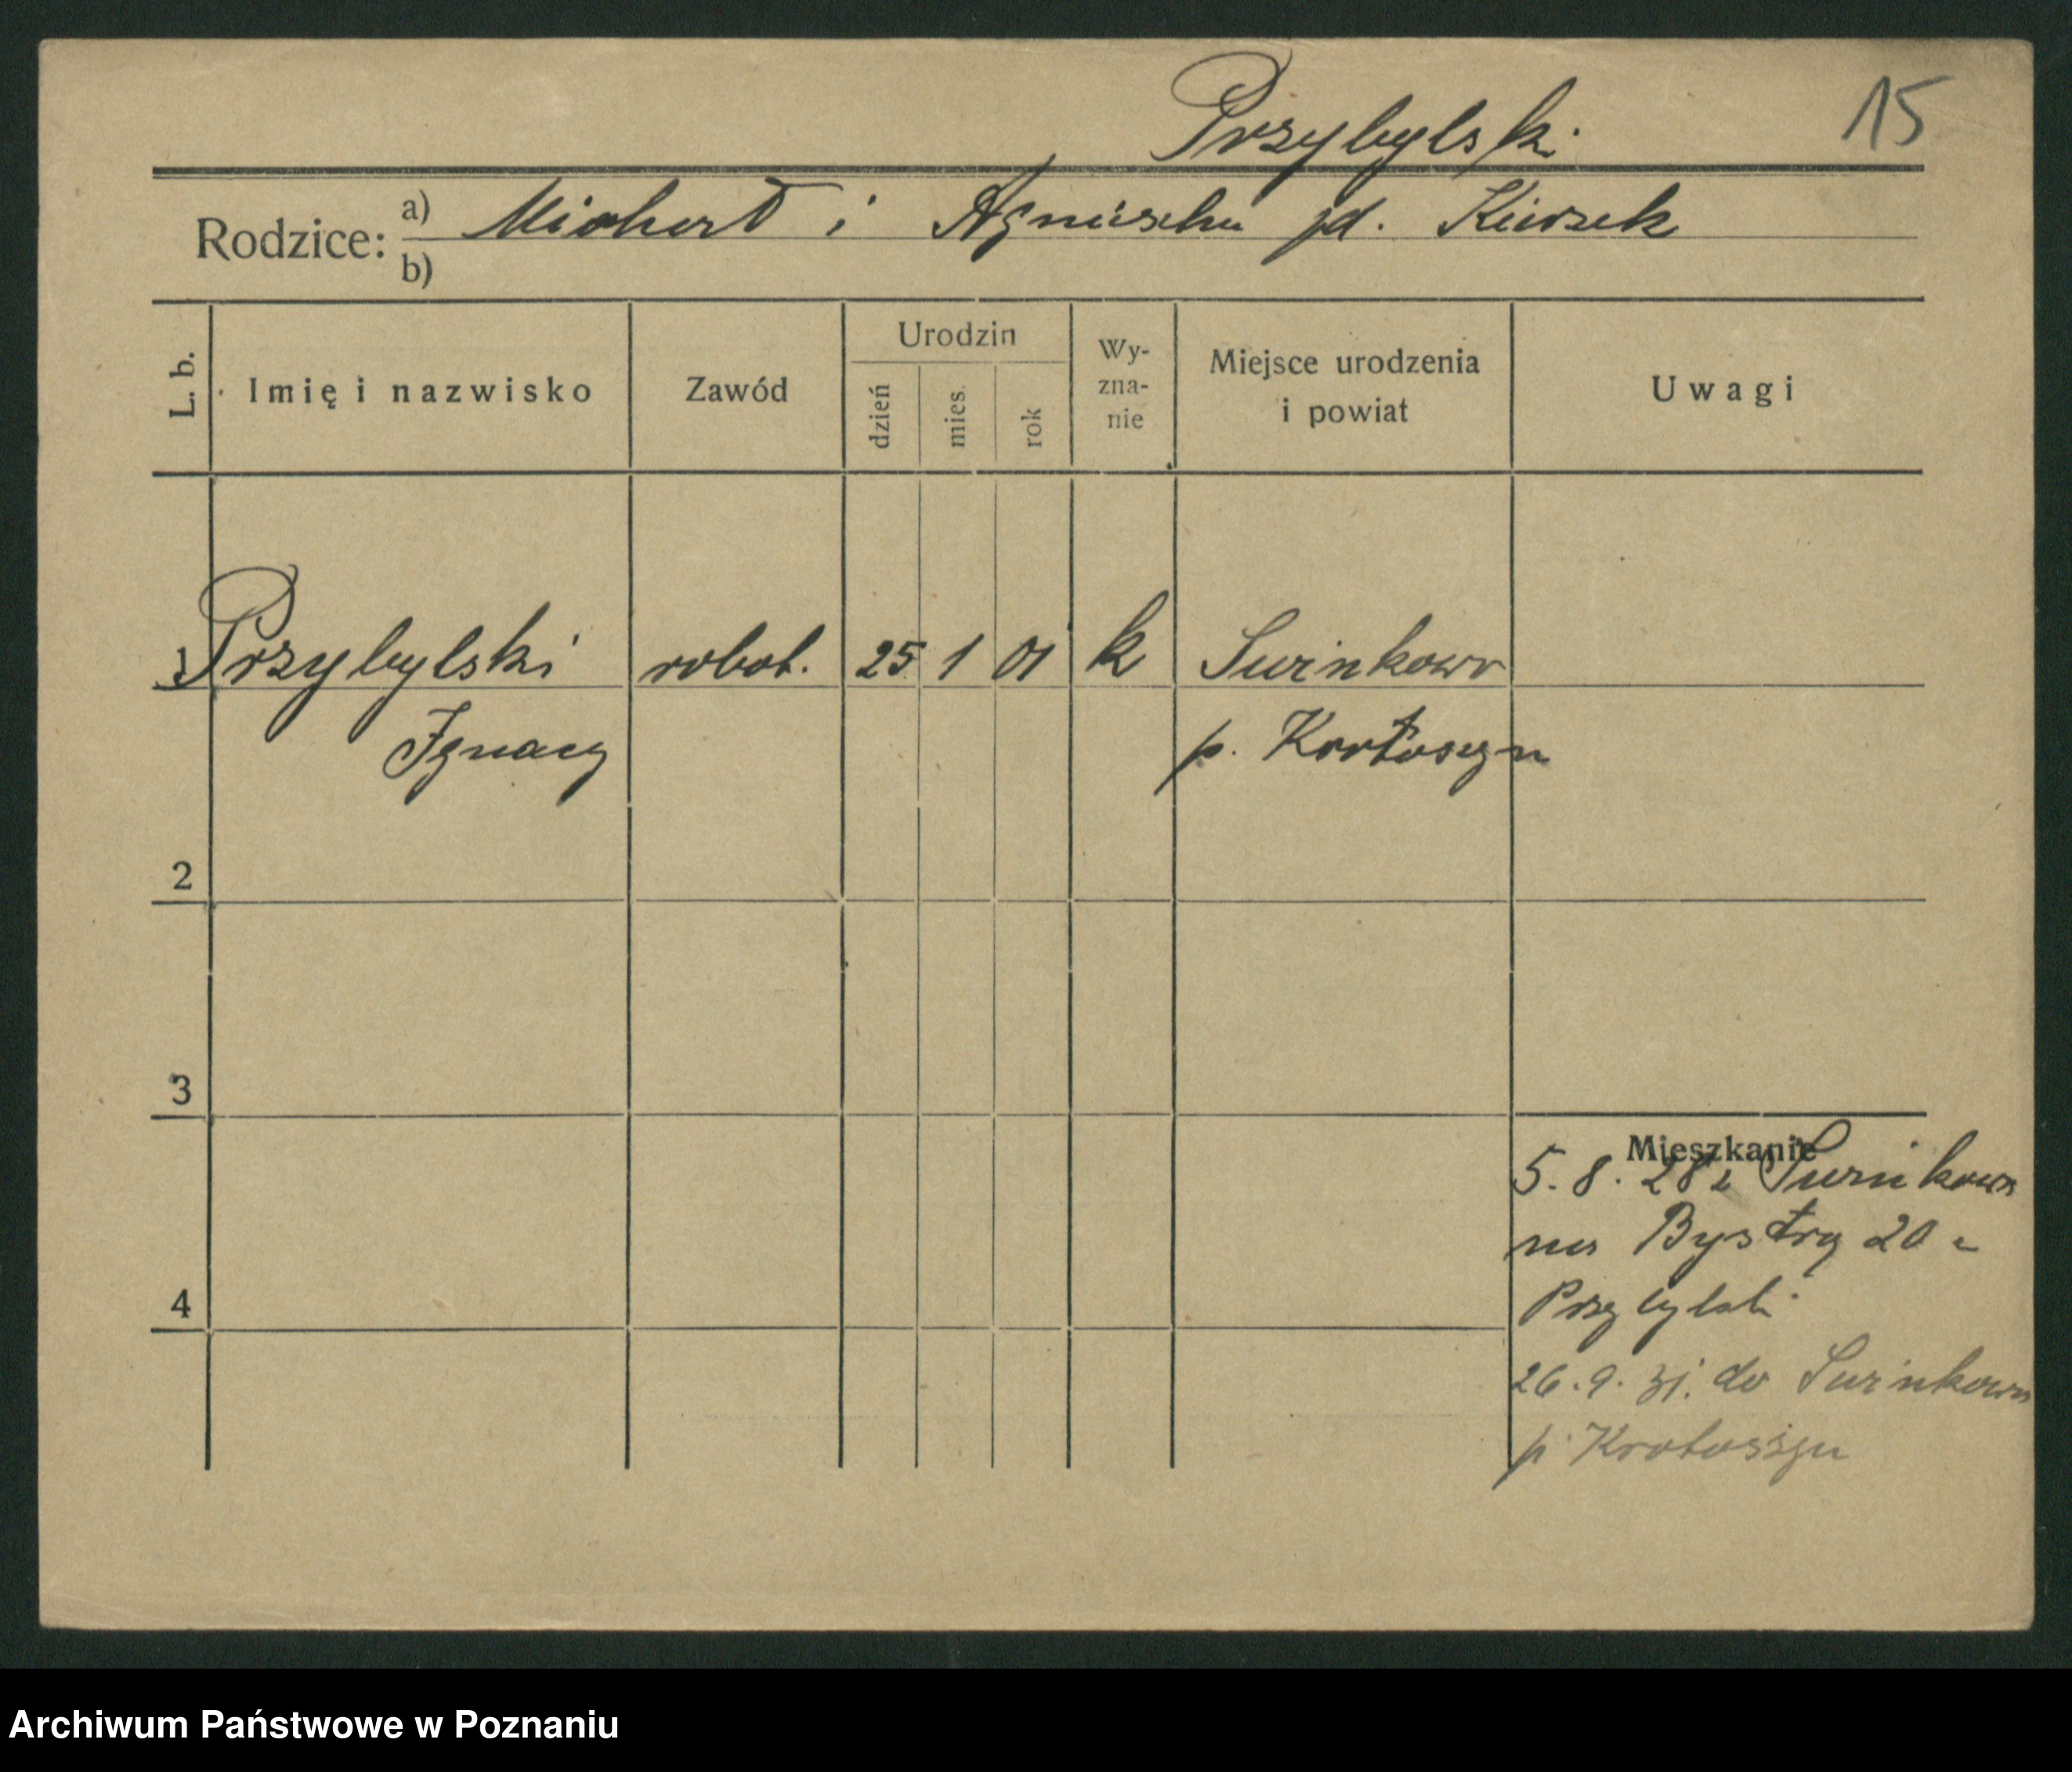 Przybylski
15
Rodzice: a) Michał i Agnieszka jd. Kurzek
b)
L. b.
Imię i nazwisko
Zawód
Urodzin
dzień
mies.
rok
Wy-
zna-
nie
Miejsce urodzenia
i powiat
Uwagi
1 Przybylski robot. 25 1 01 k
Ignacy p. Krotoszyn
2
3
Mieszkanie
5. 8. 28 z
na Bystrą 20 z
4 Przybylski
26. 9. 31. do
p. Krotoszyn
Archiwum Państwowe w Poznaniu